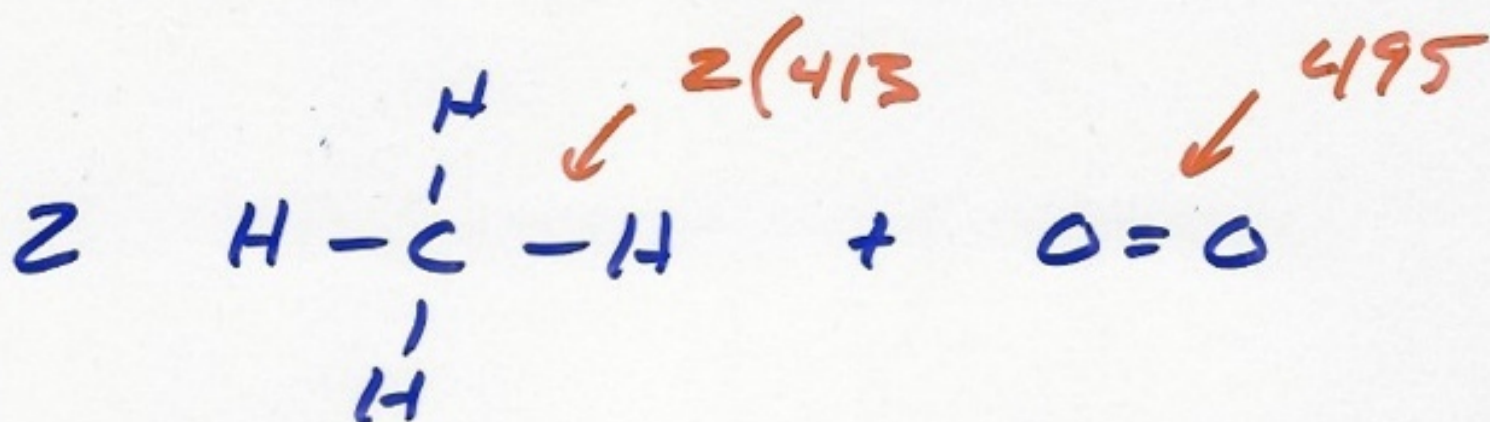 2(413 495
H
2 H – C – H + O = O
H